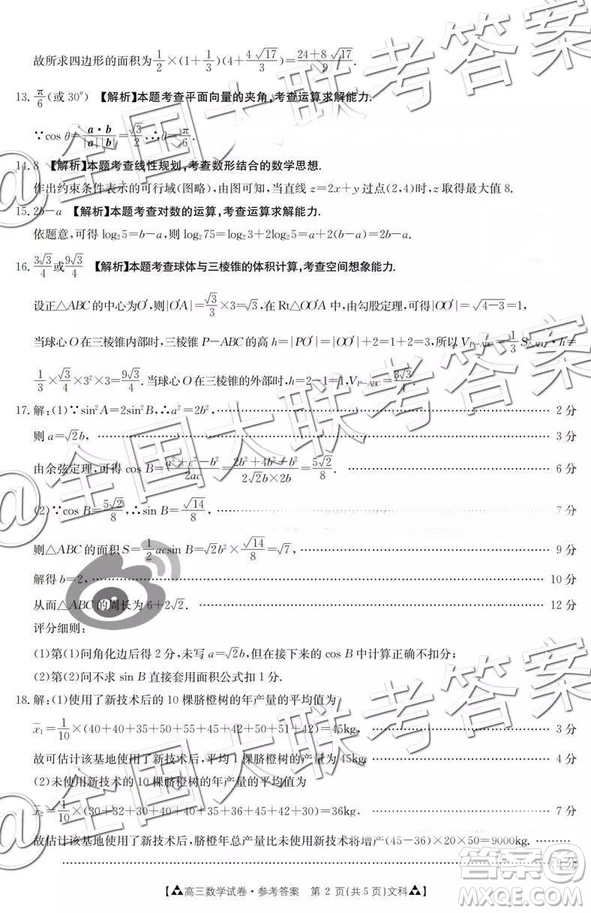 故所求四边形的面积为 1/2×(1+1/3)(4+4√17/3)=(24+8√17)/9.
13. π/6(或 30°) 【解析】本题考查平面向量的夹角,考查运算求解能力.
∵cos θ=a·b/|a||b|=√3/2,∴θ=π/6.
14. 8 【解析】本题考查线性规划,考查数形结合的数学思想.
作出约束条件表示的可行域(图略),由图可知,当直线 z=2x+y 过点(2,4)时,z 取得最大值 8.
15. 2b-a 【解析】本题考查对数的运算,考查运算求解能力.
依题意,可得 log₂5=b-a,则 log₂75=log₂3+2log₂5=a+2(b-a)=2b-a.
16. 3√3/4 或 9√3/4 【解析】本题考查球体与三棱锥的体积计算,考查空间想象能力.
设正△ABC 的中心为O′,则|O′A|=√3/3×3=√3,在 Rt△OO′A 中,由勾股定理,可得|OO′|=√4-3=1,
当球心 O 在三棱锥内部时,三棱锥 P-ABC 的高 h=|PO′|=|OO′|+2=1+2=3,所以 V
1/3×√3/4×3²×3=9√3/4.当球心 O 在三棱锥的外部时,h=2-1=1,V
17. 解:(1)∵sin²A=2sin²B,∴a²=2b², 2 分
则 a=√2b, 3 分
由余弦定理,可得 cos B=(a²+c²-b²)/2ac=(2b²+4b²-b²)/(2√2b×2b)=5√2/8. 6 分
(2)∵cos B=5√2/8,∴sin B=√14/8, 7 分
则△ABC 的面积 S=1/2 acsin B=√2b²×√14/8=√7, 9 分
解得 b=2, 10 分
从而△ABC 的周长为 6+2√2. 12 分
评分细则:
(1)第(1)问角化边得 2 分,未写 a=√2b,但接下来的 cos B 计算正确不扣分;
(2)第(2)问不求 sin B 直接套用面积公式扣 1 分.
18. 解:(1)使用了新技术后的 10 棵脐橙树的年产量的平均值为
x̄₁=1/10×(40+40+35+50+55+45+50+40+50)=45kg, 3 分
故可估计该基地使用了新技术后,平均 1 棵脐橙树的产量为 45kg.
(2)未使用新技术的 10 棵脐橙树的年产量的平均值为
x̄₂=1/10×(30+32+30+40+40+35+36+45+30)=36kg, 7 分
故估计该基地使用了新技术后,脐橙年总产量比未使用新技术将增产(45-36)×20×50=9000kg.
高三数学试卷·参考答案 第 2 页(共 5 页)文科
@全国大联考答案
@全国大联考答案